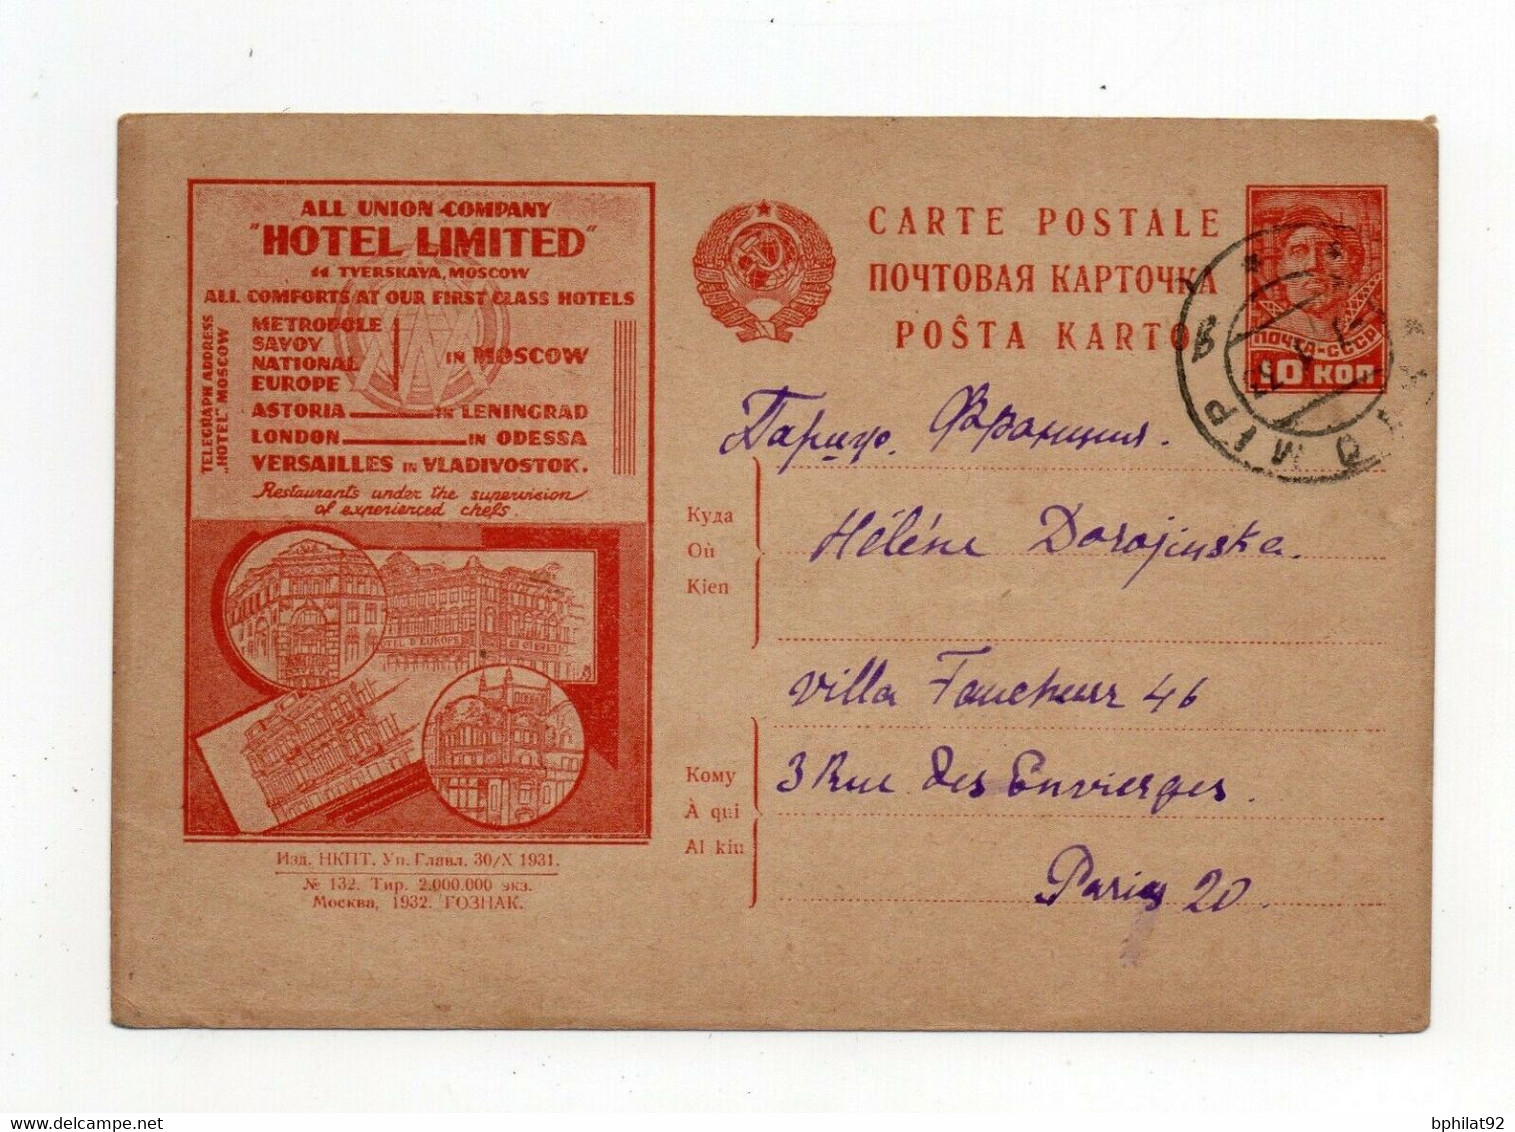 ALL UNION COMPANY
"HOTEL LIMITED"
11 TVERSKAYA, MOSCOW
ALL COMFORTS AT OUR FIRST CLASS HOTELS
TELEGRAPH ADDRESS
„HOTEL" MOSCOW
METROPOLE
SAVOY
NATIONAL
EUROPE
IN MOSCOW
ASTORIA IN LENINGRAD
LONDON IN ODESSA
VERSAILLES IN VLADIVOSTOK.
Restaurants under the supervision
of experienced chefs.
D'EUROPE
Изд. НКПТ. Уп. Главл. 30/X 1931.
№ 132. Тир. 2.000.000 экз.
Москва, 1932. ГОЗНАК.
CARTE POSTALE
ПОЧТОВАЯ КАРТОЧКА
POŜTA KARTO
ПОЧТА-СССР
10 КОП
Франция.
Куда
Où
Kien
Hélène Dorojinska.
Villa Faucheur 46
Кому
À qui
Al kiu
3 Rue des Envierges.
Paris 20.
bphilat92